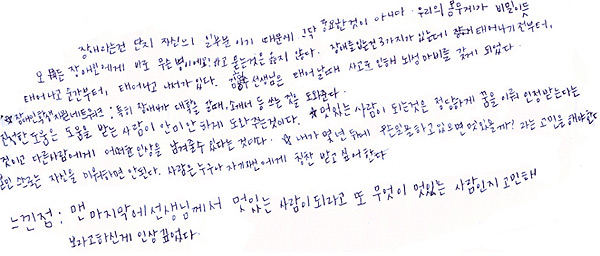 장애라는건 단지 자신의 일부분이기 때문에 그닥 중요한것이 아니다. 우리의 몸무게가 비밀이듯
모든 장애인에게 바로 우는병이에요! 라고 묻는것은 옳지 않다. 장애를 입는건 3가지가 있는데 태어나기전부터,
태어나고 순간부터, 태어나고 나서가 있다. 선생님은 태어날때 사고로 인해 뇌성마비를 갖게 되었다.
특히 장애우가 대학을 갈때, 등 모든 것을 도와준다.
진정한 도움은 도움을 받는사람이 안미안하게 도와주는것이다. ☆멋있는사람이 되는것은 정당하게 꿈을 이뤄 인정받는다는
것이고 다른사람에게 어떠한 인상을 남겨줄수 있다는 것이다. ☆ 내가 몇년 뒤에 하고있으면 멋있을까? 라는 고민을 해야한다
스스로는 자신을 미워하면 안된다. 사람은 누구나 자기자신에게 칭찬 받고 싶어한다
느낀점 : 맨 마지막에 선생님께서 멋있는 사람이 되라고 또 무엇이 멋있는 사람인지 고민해
보라고하신게 인상깊었다.